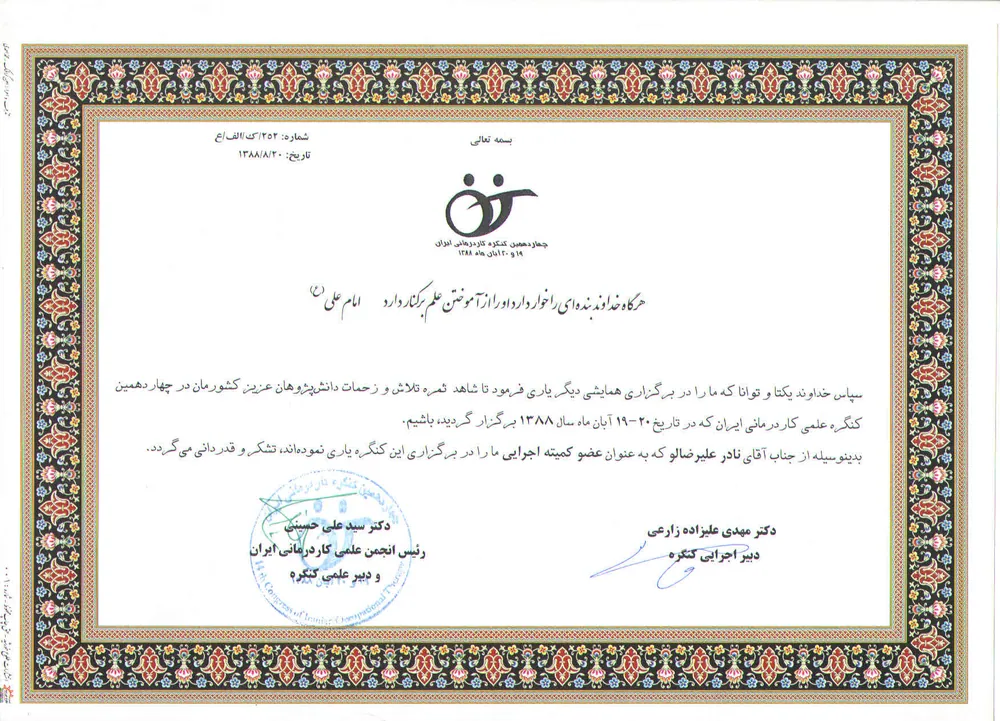 بسمه تعالی
شماره: ۲۵۲/ک/الف/ع
تاریخ: ۱۳۸۸/۸/۲۰
چهاردهمین کنگره کاردرمانی ایران
۱۹ و ۲۰ آبان ماه ۱۳۸۸
هرگاه خداوند بنده ای را خوار دارد او را از آموختن علم برکنار دارد امام علی (ع)
سپاس خداوند یکتا و توانا که ما را در برگزاری همایشی دیگر یاری فرمود تا شاهد ثمره تلاش و زحمات دانش‌پژوهان عزیز کشورمان در چهاردهمین
کنگره علمی کاردرمانی ایران که در تاریخ ۲۰-۱۹ آبان ماه سال ۱۳۸۸ برگزار گردید، باشیم.
بدینوسیله از جناب آقای نادر علیرضالو که به عنوان عضو کمیته اجرایی ما را در برگزاری این کنگره یاری نموده‌اند، تشکر و قدردانی می‌گردد.
دکتر مهدی علیزاده زارعی
دبیر اجرایی کنگره
دکتر سید علی حسینی
رئیس انجمن علمی کاردرمانی ایران
و دبیر علمی کنگره
چهاردهمین کنگره کاردرمانی
14th Congress of Iranian Occupational